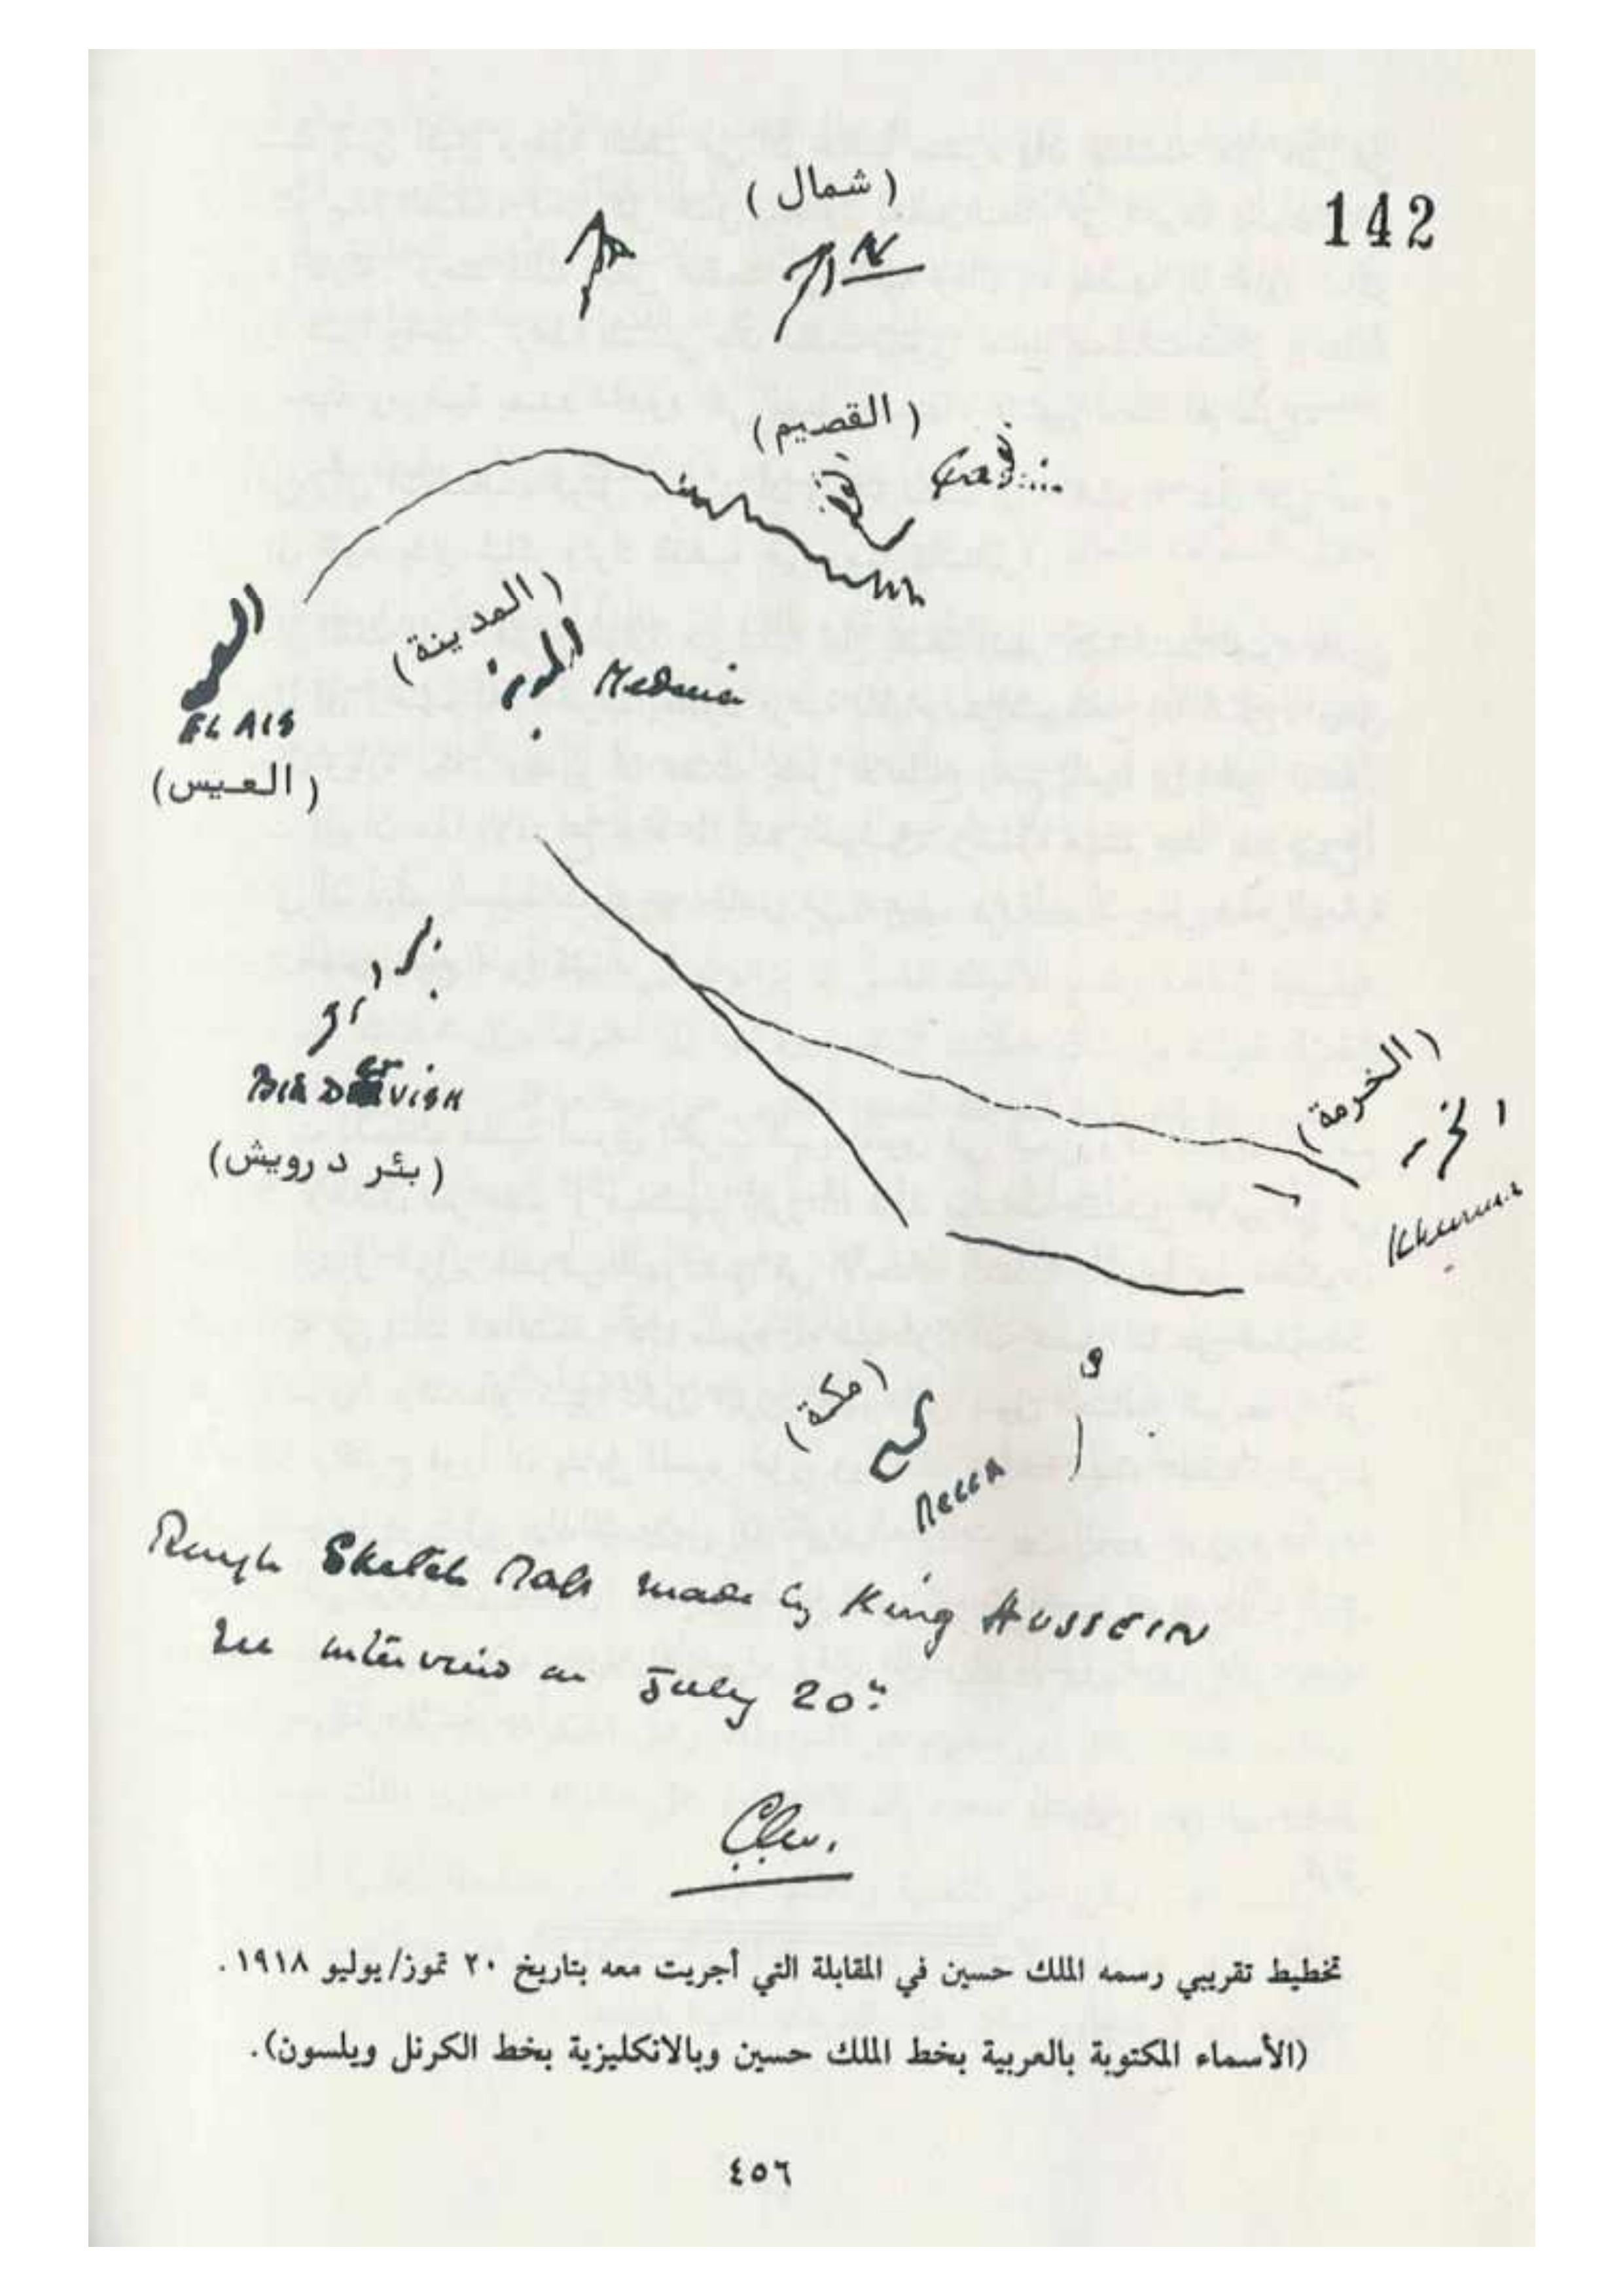 142
(شمال)
N
(القصيم)
(المدينة)
Medina
EL AIS
(العيس)
BIR DERVISH
(بئر درويش)
(الخرمة)
Khurma
(مكة)
MECCA
Rough Sketch Map made by King HUSSEIN
in interview on July 20th
تخطيط تقريبي رسمه الملك حسين في المقابلة التي أجريت معه بتاريخ ٢٠ تموز/يوليو ١٩١٨.
(الأسماء المكتوبة بالعربية بخط الملك حسين وبالانكليزية بخط الكرنل ويلسون).
٤٥٦